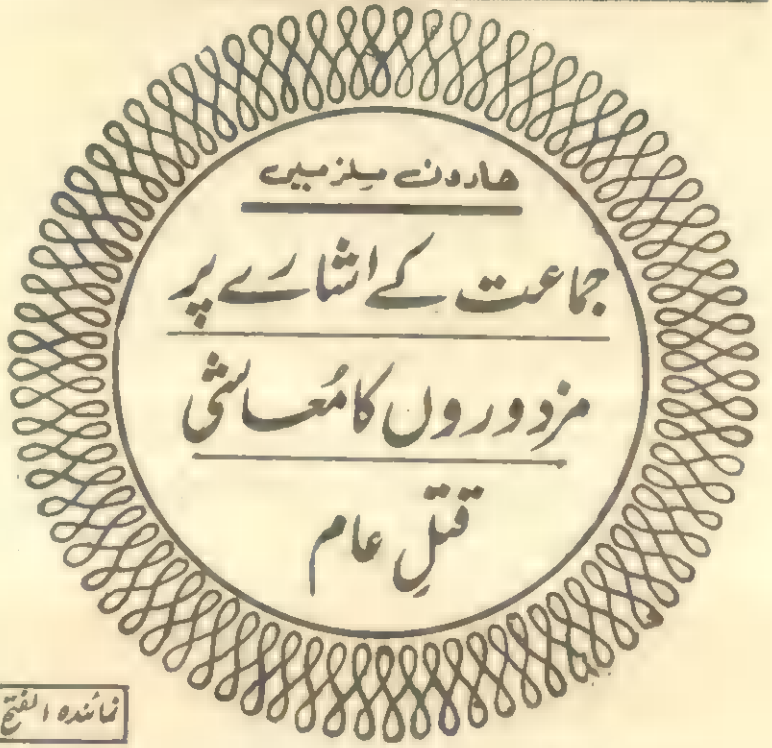 ہارون ملز میں
جماعت کے اشارے پر
مزدوروں کا مُعاشی
قتلِ عام
نمائندہ الفتح